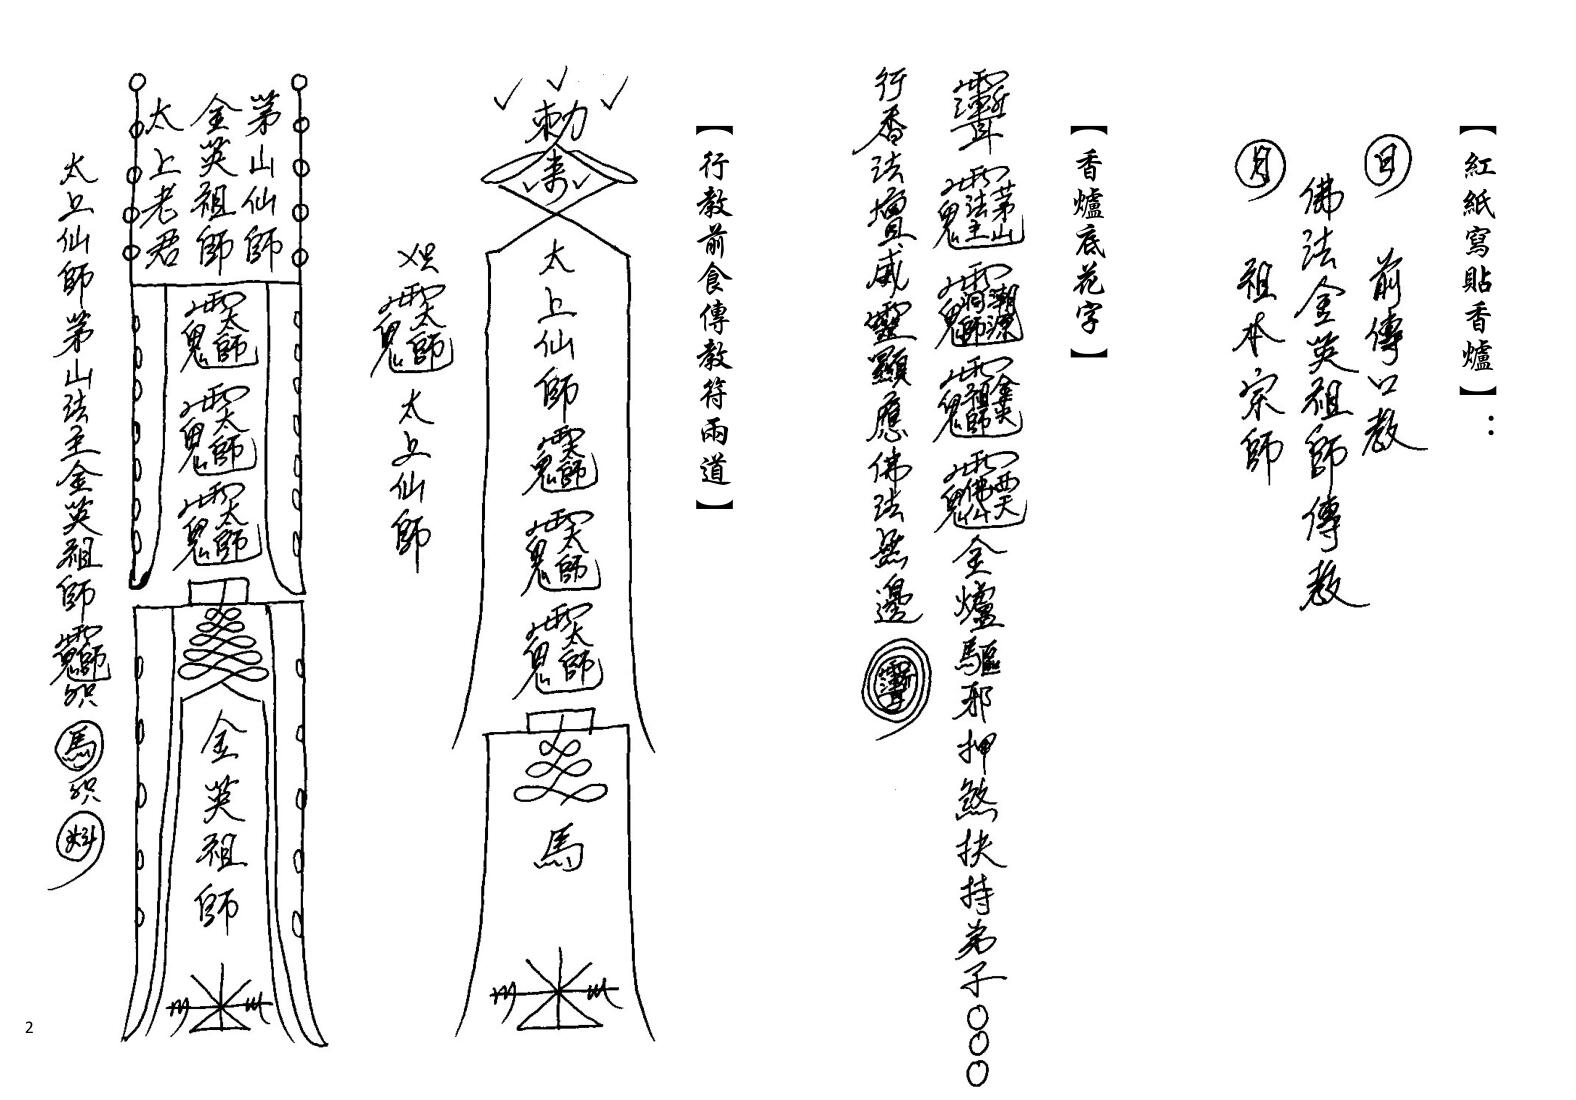 【紅紙寫貼香爐】：
日 前傳口教
佛法金英祖師傳教
月 祖本宗師
【香爐底花字】
茅山法主 潮源洞師 金英祖師 西天佛 金爐驅邪押煞扶持弟子○○○
行香法壇威靈顯應佛法無邊
【行教前食傳教符兩道】
勅來
太上仙師
太師
太師
太師
馬
太師 太上仙師
茅山仙師
金英祖師
太上老君
太師
太師
太師
金英祖師
太上仙師茅山法主金英祖師 師 馬
2